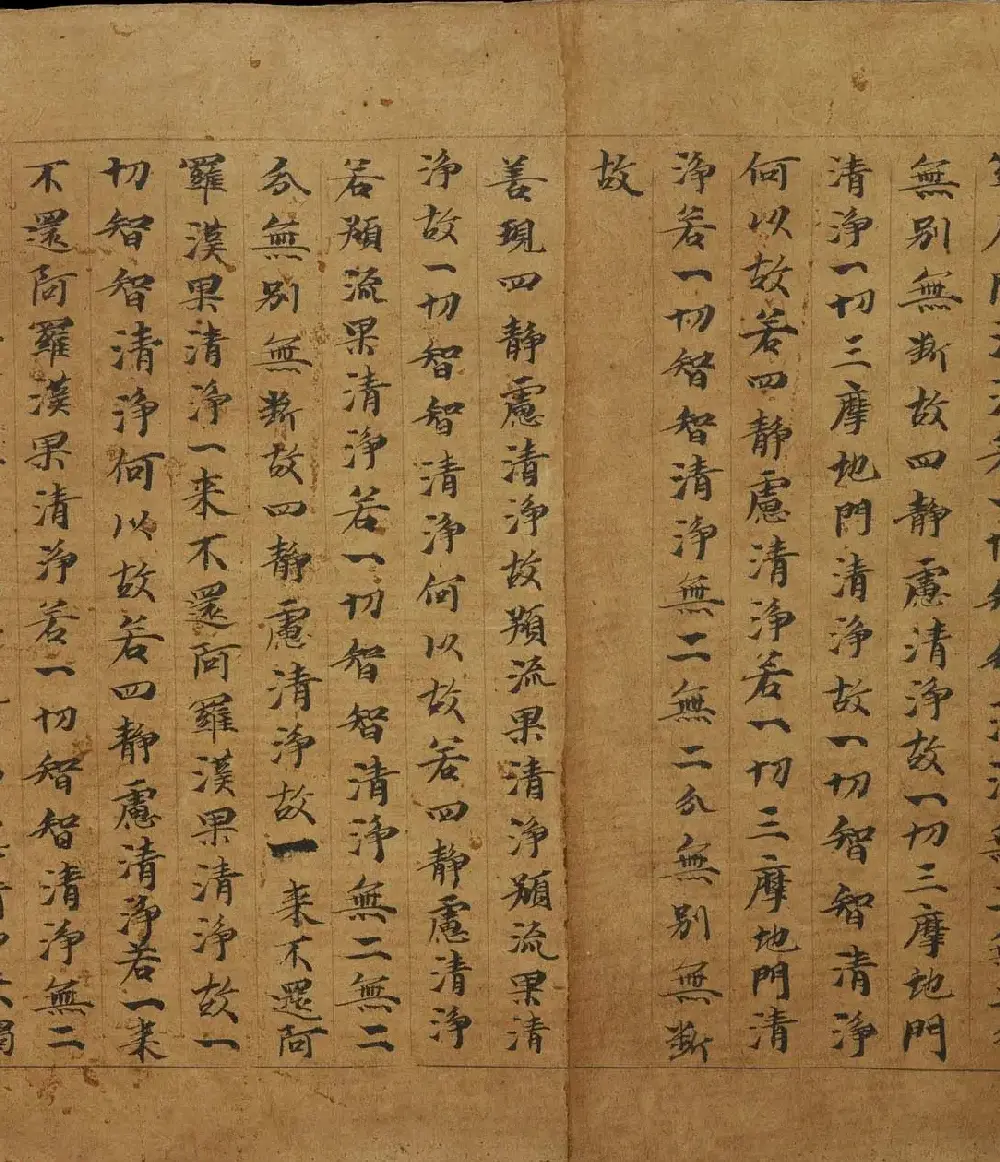 無別無断故四静慮清淨故一切三摩地門
清淨一切三摩地門清淨故一切智智清淨
何以故若四静慮清淨若一切三摩地門清
淨若一切智智清淨無二無二分無別無断
故
善現四静慮清淨故預流果清淨預流果清
淨故一切智智清淨何以故若四静慮清淨
若預流果清淨若一切智智清淨無二無二
分無別無断故四静慮清淨故一来不還阿
羅漢果清淨一来不還阿羅漢果清淨故一
切智智清淨何以故若四静慮清淨若一来
不還阿羅漢果清淨若一切智智清淨無二